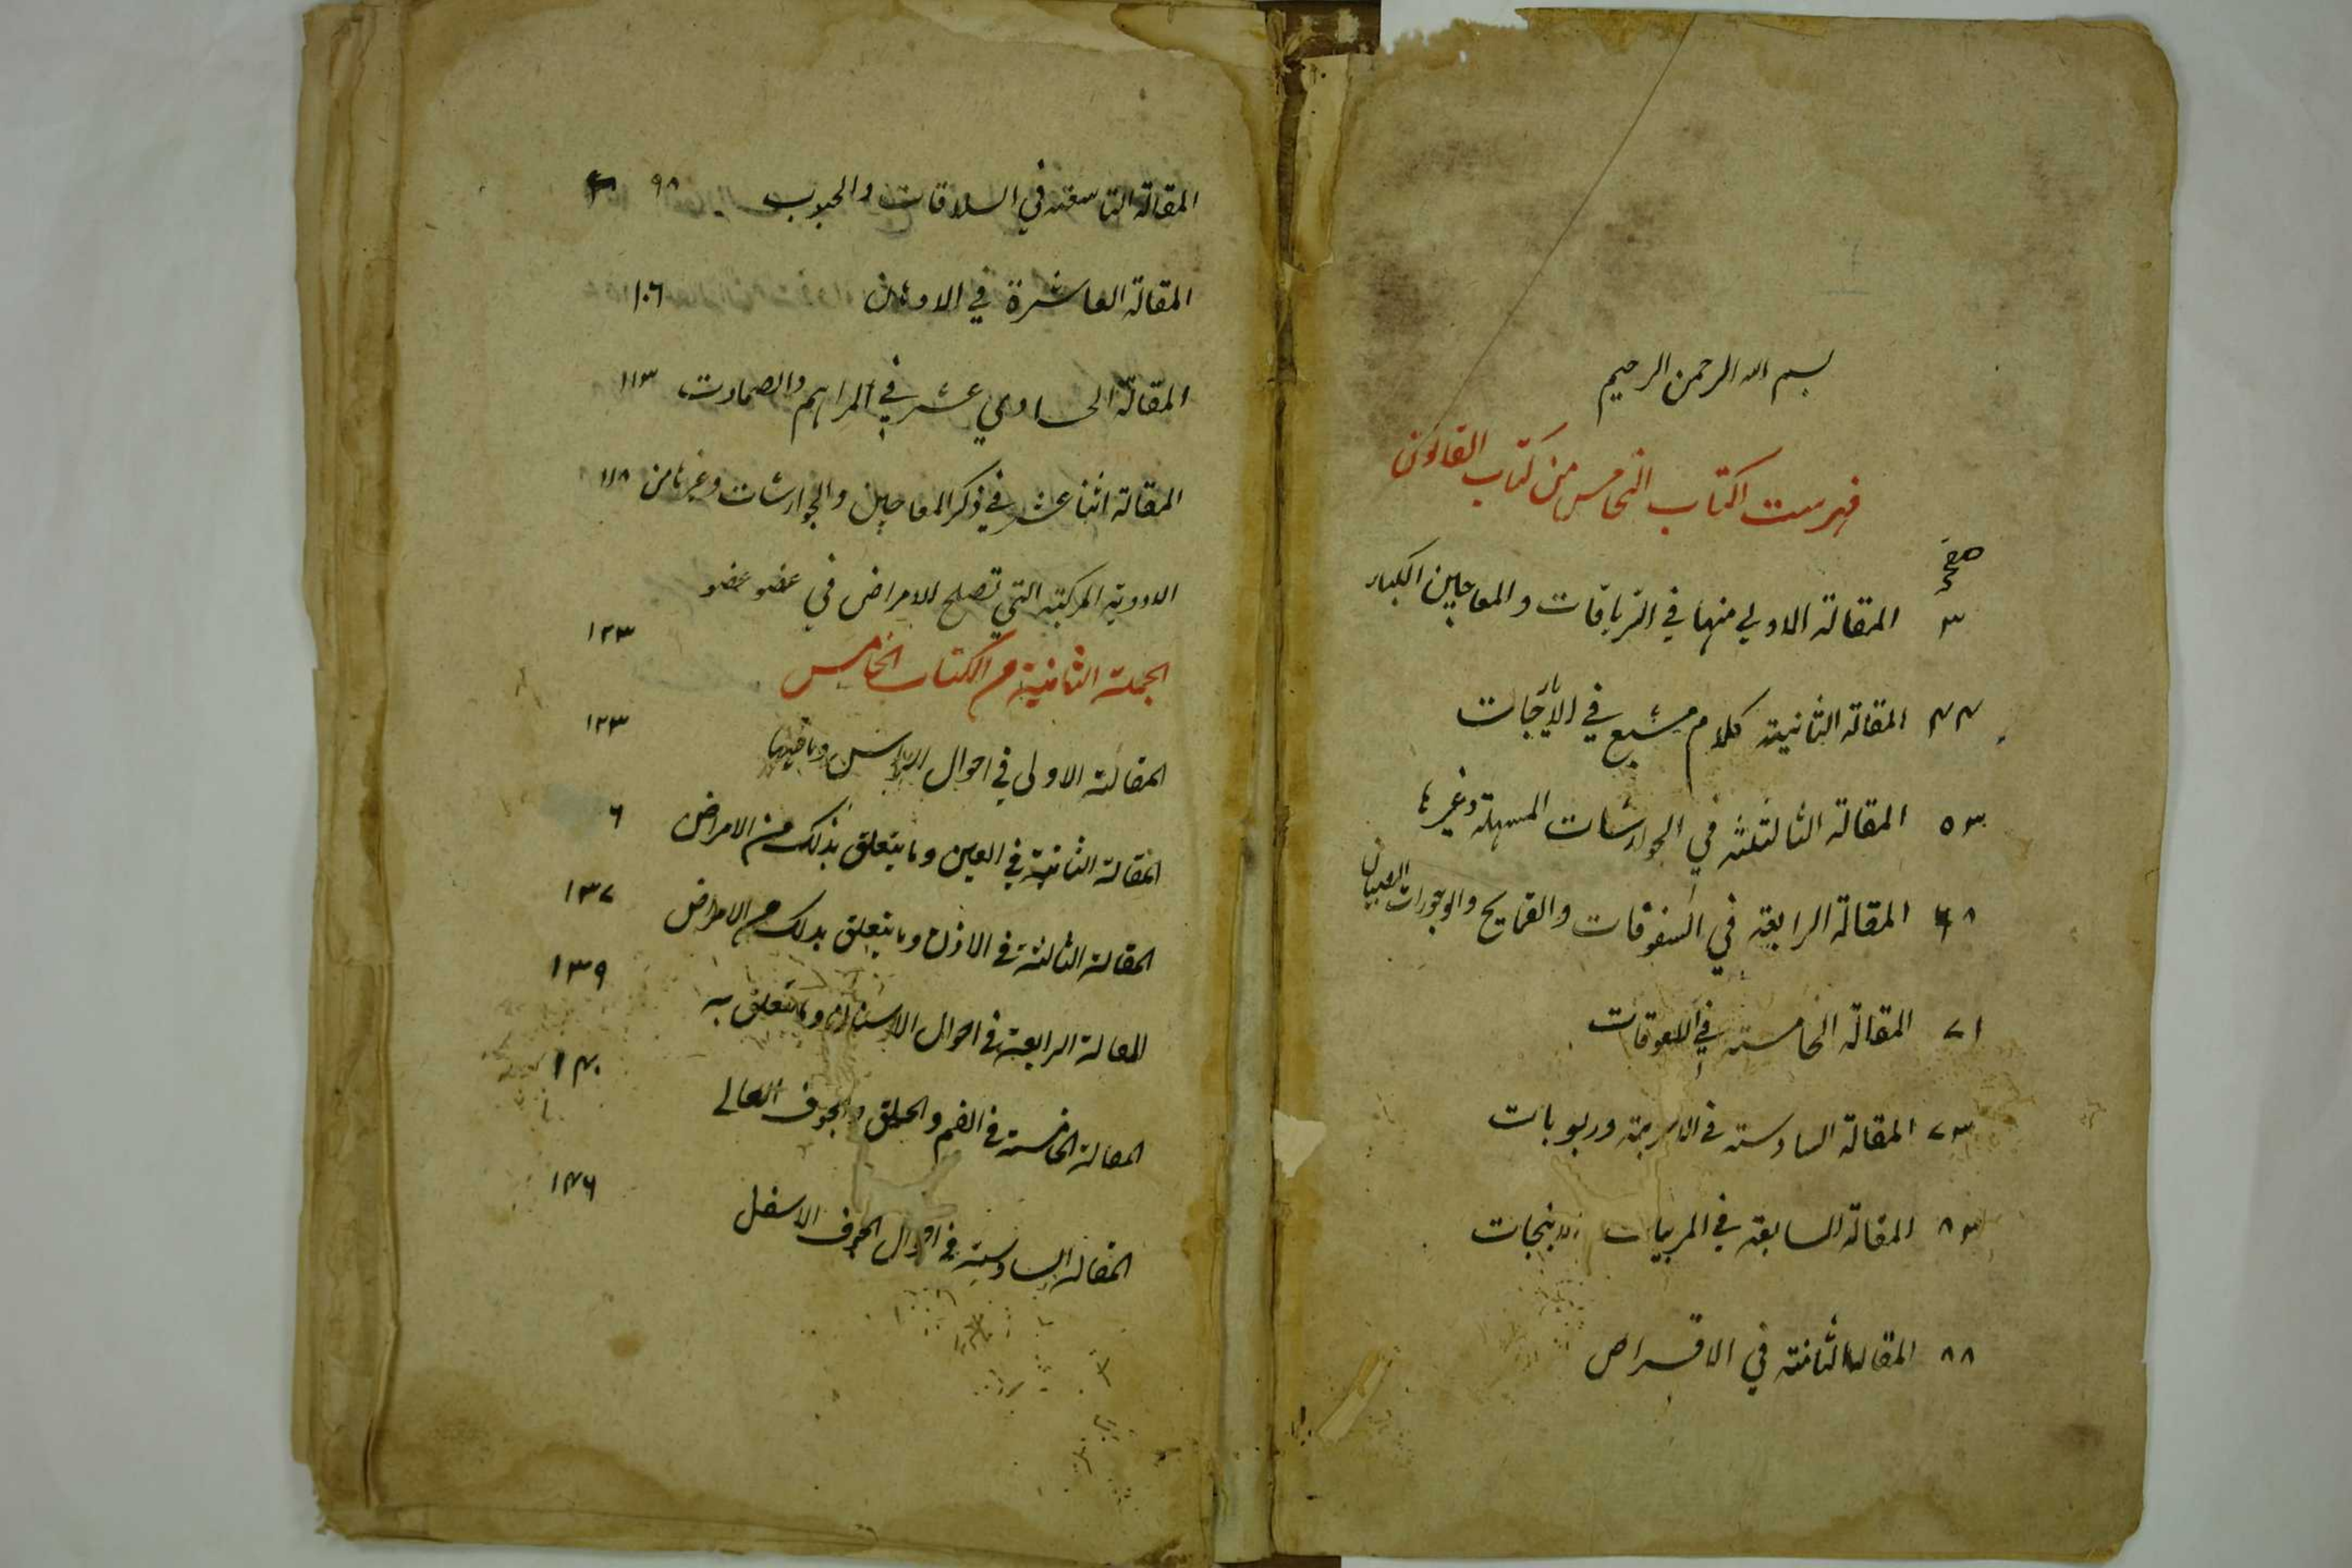 بسم الله الرحمن الرحيم
فهرست الكتاب الخامس من كتاب القانون
صفحه
٣ المقالة الاولي منها في الترياقات والمعاجين الكبار
٤٤ المقالة الثانية كلام مشبع في الايارجات
٥٣ المقالة الثالثة في الجوارشات المسهلة وغيرها
٦٨ المقالة الرابعة في السفوفات والقمايح والوجورات الصبيان
٧١ المقالة الخامسة في اللعوقات
٧٣ المقالة السادسة في الاشربة وربوبات
٨٣ المقالة السابعة في المربيات الانبجات
٨٨ المقالة الثامنة في الاقراص
المقالة التاسعة في السلاقات والحبوب ٩٨
المقالة العاشرة في الادهان ١٠٦
المقالة الحادي عشر في المراهم والضمادات ١١٣
المقالة اثنا عشر في ذكر المعاجين والجوارشات وغيرها من ١١٨
الادوية المركبة التي تصلح للامراض في عضو عضو
الجملة الثانية من الكتاب الخامس ١٢٣
المقالة الاولى في احوال الراس وما فيها ١٢٣
المقالة الثانية في العين وما يتعلق بذلك من الامراض ٦
المقالة الثالثة في الاذن وما يتعلق بذلك من الامراض ١٣٧
المقالة الرابعة في احوال الاسنان وما يتعلق به ١٣٩
المقالة الخامسة في الفم والحلق والجوف العالي ١٤٠
المقالة السادسة في احوال الجوف الاسفل ١٤٦